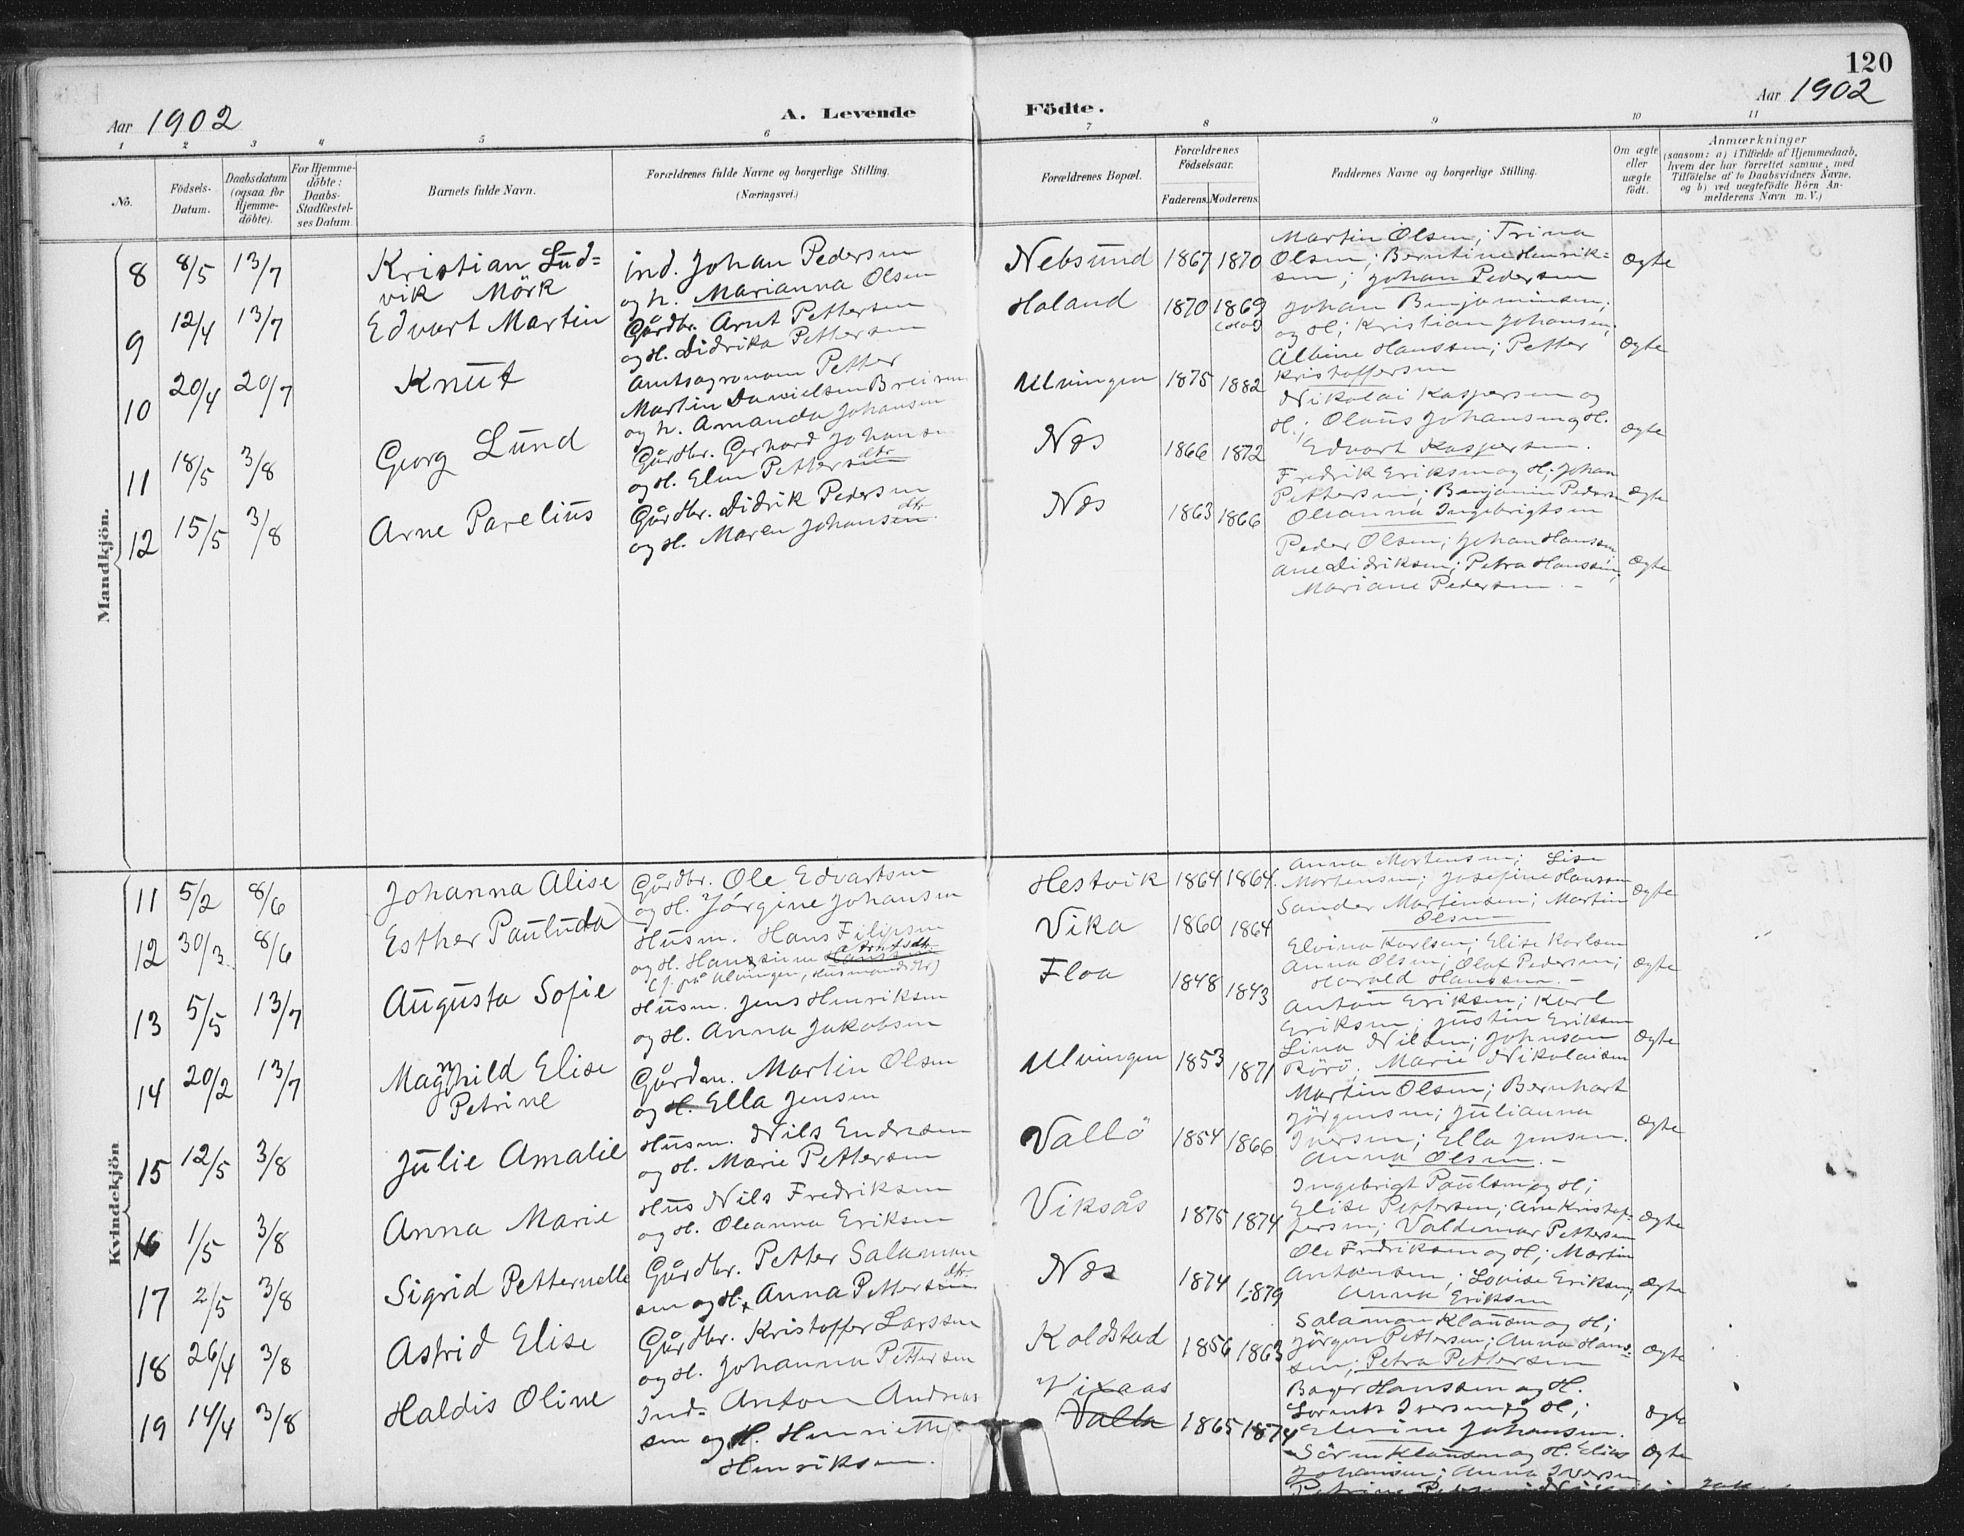 120
Aar 1902
A. Levende Födte.
Aar 1902
1 2 3 4 5 6 7 8 9 10 11
No.
Födsels-Datum.
Daabsdatum (ogsaa for Hjemme-döbte).
For Hjemme-döbte: Daabs-Stadfæstel-ses Datum.
Barnets fulde Navn.
Forældrenes fulde Navne og borgerlige Stilling.
(Næringsvei.)
Forældrenes Bopæl.
Forældrenes Födselsaar.
Faderens. Moderens.
Faddernes Navne og borgerlige Stilling.
Om ægte eller uægte födt.
Anmærkninger
(saasom: a) i Tilfælde af Hjemmedaab,
hvem der har forrettet samme, med
Tilföielse af to Daabsvidners Navne,
og b) ved uægtefödte Börn An-
melderens Navn m. V.)
Mandkjön.
8 8/5 13/7 Kristian Lud=
vik Mörk
Ind. Johan Pedersen
og h. Marianna Olsen
Nebsund 1867 1870
Martin Olsen; Trina
Olsen; Berntine Henrik=
sen; Johan Pedersen
Ægte
9 12/4 13/7 Edvart Martin
Gårdbr. Arnt Pettersen
og H. Didrika Pettersen
Haland 1870 1869
Johan Benjaminsen;
og H; Kristian Johansen;
Albine Hanssen; Petter
Kristoffersen
Ægte
10 20/4 20/7 Knut
Amtsagronom Petter
Martin Danielsen Brei
og h. Amanda Johansen
Ulvingen 1875 1882
Nikolai Kaspersen og
H.; Olaus Johansen og H.
Edvart Kaspersen.
Ægte
11 18/5 3/8 Georg Lund
Gårdbr. Gerhard Johansen
og H. Elen Pettersen dtr.
Næs 1866 1872
Fredrik Eriksen og H; Johan
Pettersen; Benjamin Pedersen
Oleanna Ingebrigtsen
Ægte
12 15/5 3/8 Arne Parelius
Gårdbr. Didrik Pedersen
og H. Maren Johansen dtr.
Næs 1863 1866
Peder Olsen; Johan Hanssen
Ane Didriksen; Petra Hanssen,
Mariane Pedersen. -
Ægte
Kvindekjön
11 5/2 8/6 Johanna Alise
Gårdbr. Ole Edvartsen
og H. Jørgine Johansen
Hestvik 1864 1864.
Anna Mortensen; Lise
Mortensen; Josefine Hanssen
Sander Martinsen; Martin
Olsen
Ægte
12 30/3. 8/6 Esther Pauluda
Husm. Hans Filipsen
og H. Hansine
Vika 1860 1864
Elvina Karlsen; Elise Karlsen
Anna Olsen; Olaf Pedersen;
Harald Hanssen. -
Ægte
13 5/5 13/7 Augusta Sofie
Husm. Jens Henriksen
og H. Anna Jakobsen
Floa 1848 1843
Anton Eriksen; Karl
Eriksen; Justin Eriksen
Lina Nilsen; Johnson
Rörö; Marie Nikolaisen
Ægte
14 20/2 13/7 Magnhild Elise
Petrine
Martin Olsen
og H. Ella Jensen
Ulvingen 1853 1871
Martin Olsen; Bernhart
Jörgensen; Julianna
Iversen; Ella Jensen.
Anna Olsen. -
Ægte
15 12/5 3/8 Julie Amalie
Husm. Nils Endresen
og H. Marie Pettersen
Vallö 1854 1866
Ingebrigt Paulsen og H;
Elise Pettersen; Ane Kristof-
fersen; Valdemar Pettersen
Ægte
16 1/5 3/8 Anna Marie
Hus Nils Fredriksen
og H. Oleanna Eriksen
Viksås 1875 1874
Ole Fredriksen og H; Martin
Antonsen; Lovise Eriksen;
Anna Eriksen
Ægte
17 2/5 3/8 Sigrid Petternelle
Gårdbr. Petter Salamon
sen og H. Anna Pettersen dtr.
Næs 1874 1879
Salamon Klausen og H;
Jörgen Pettersen; Anna Hans-
sen; Petra Pettersen
Ægte
18 26/4 3/8 Astrid Elise
Gårdbr. Kristoffer Larssen
og H. Johanna Pettersen
Koldstad 1856 1863
Hanssen og H.
Iversen og H;
Johansen.
Ægte
19 14/4 3/8 Haldis Oline
Ind. Anton Andreas
sen og H. Henriette
Henriksen.
Vixaas
Valla 1865 1874
Sören Klausen og H. Elias
Johansen; Anna Iversen
Ægte